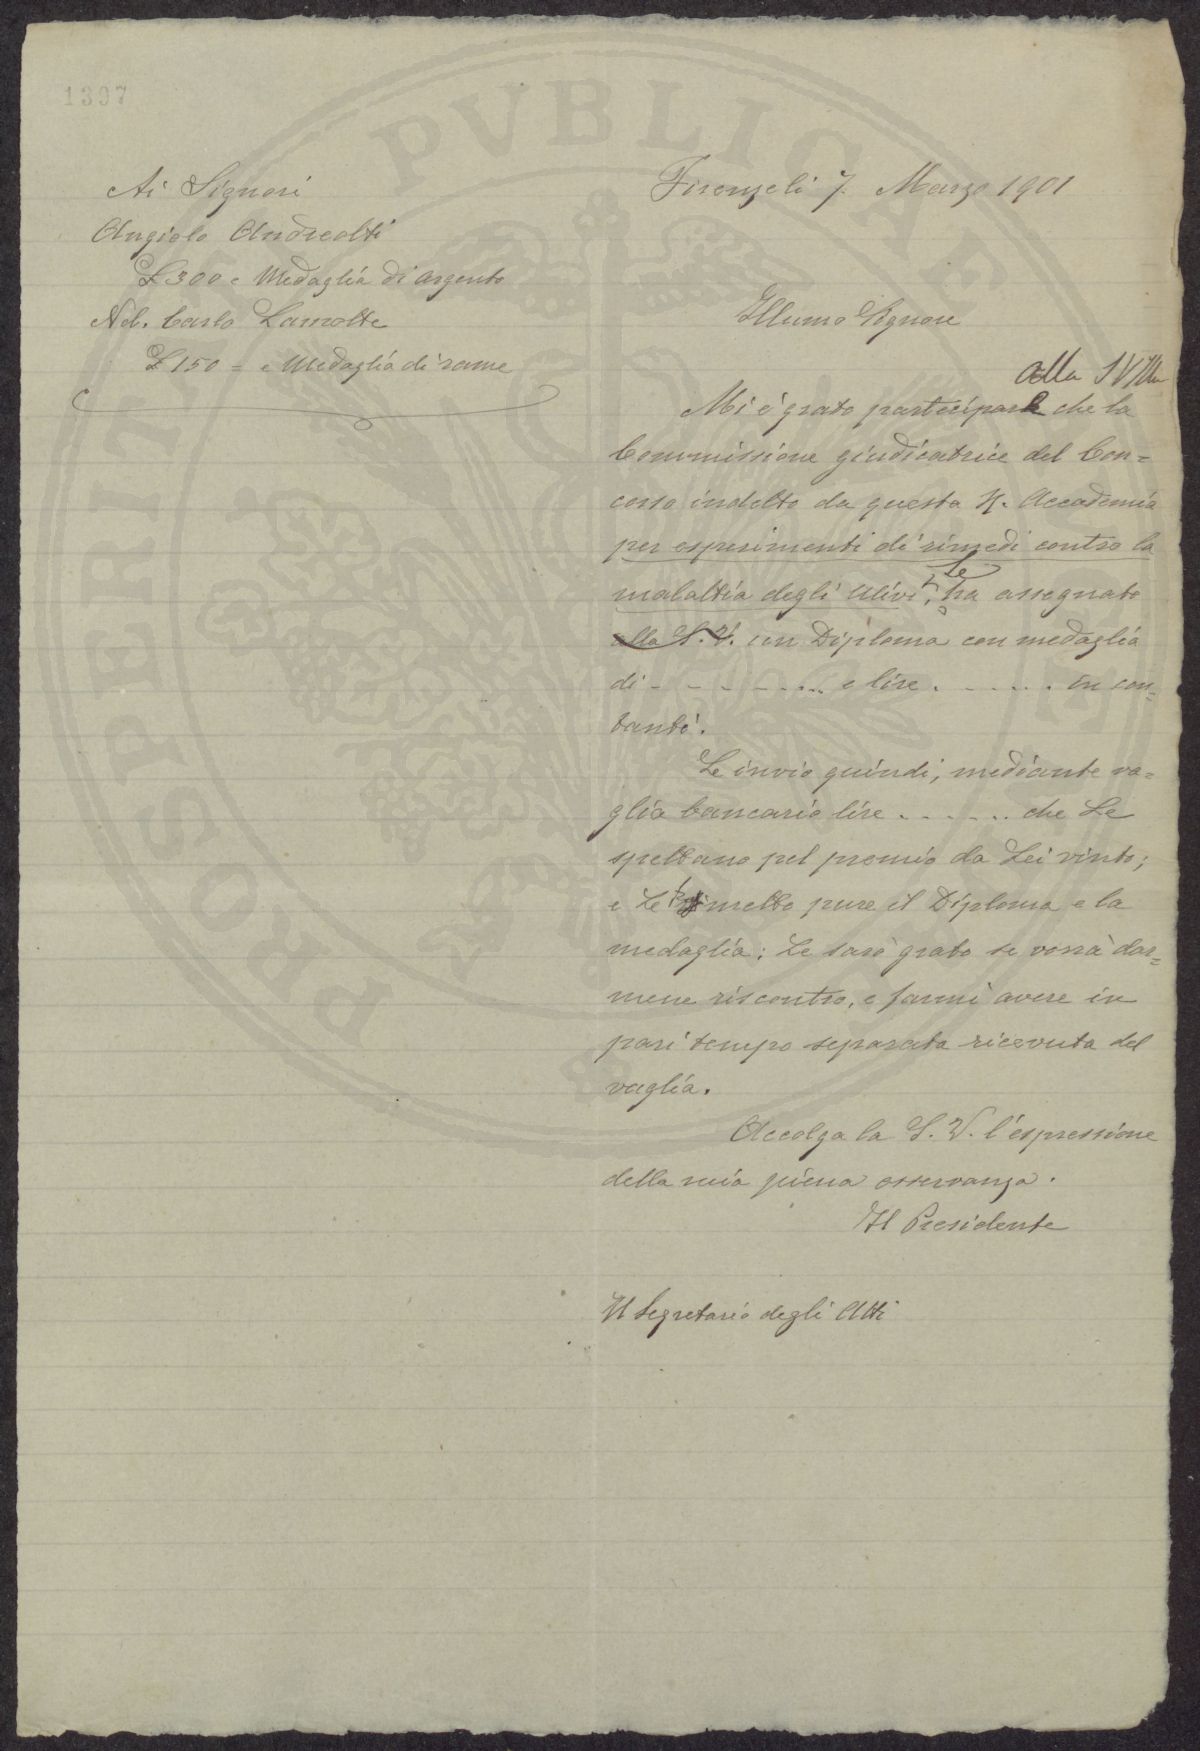 1397
Ai Signori
Angiolo Andreotti
L 300 e Medaglia di argento
Nob. Carlo Lamotte
L 150 = e Medaglia di rame
Firenze li 7. Marzo 1901
Illumo Signore
alla SV Illa
Mi è grato partecipare che la
Commissione giudicatrice del Con=
corso indetto da questa R. Accademia
per esperimenti di rimedi contro la
Le
malattia degli Ulivi, ha assegnato
alla S. V. un Diploma con medaglia
di - - - - - - ... e lire . - - - . . in con=
tanti.
Le invio quindi, mediante va=
glia bancario lire . - - - . . che Le
spettano pel premio da Lei vinto;
e Le rimetto pure il Diploma e la
medaglia; Le sarò grato se vorrà dar=
mene riscontro, e farmi avere in
pari tempo separata ricevuta del
vaglia.
Accolga la S. V. l'espressione
della mia piena osservanza.
Il Presidente
Il Segretario degli Atti
PVBLICAE
PROSPERITATIS